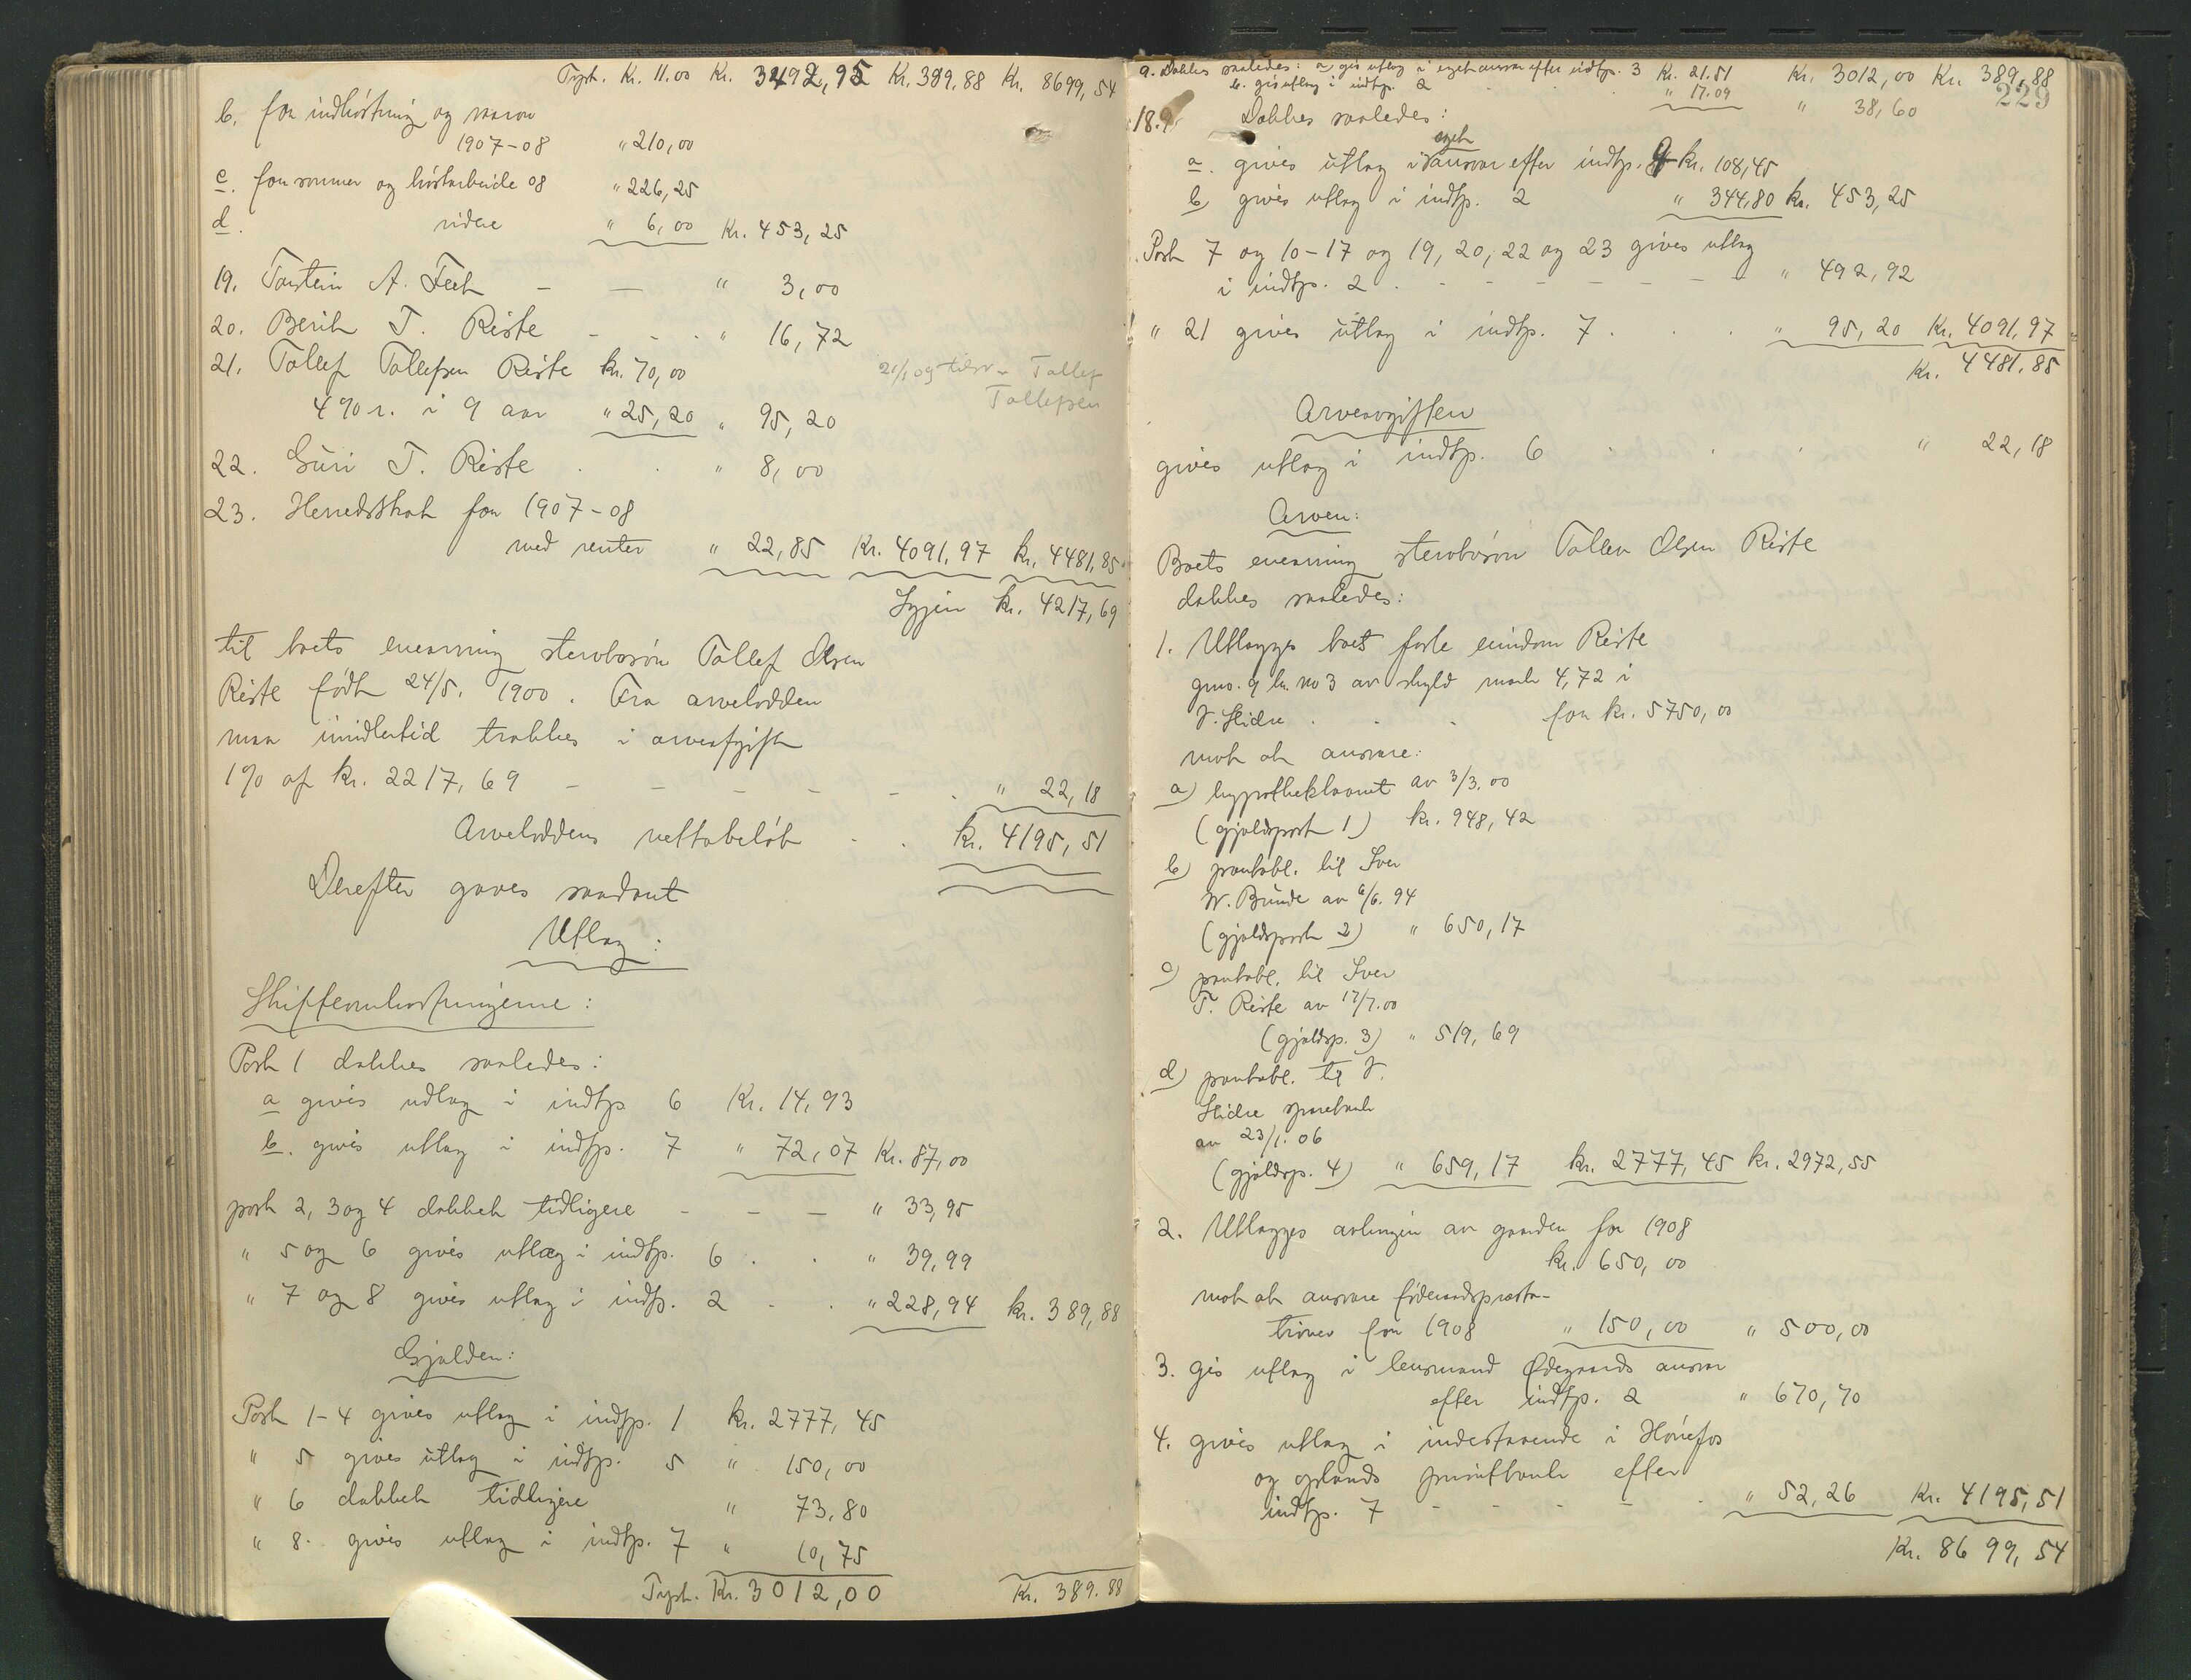 Tpt. Kr. 11.00 Kr. 3492,95 Kr. 389,88 Kr. 8699,54
b. for indhøstning og
1907-08 " 210,00
c. for sommer og høstarbeide 08 " 226,25
d. videre " 6,00 Kr. 453,25
19. Torstein A. Feet - - " 3,00
20. Berit T. Riste - - " 16,72
21. Tollef Tollefsen Riste kr. 70,00
21/1 09 Tollef
Tollefsen
4% r. i 9 aar " 25,20 " 95,20
22. Guri T. Riste . . " 8,00
23. Herredsskat for 1907-08
med renter " 22,85 Kr. 4091,97 kr. 4481,85
Igjen kr. 4217,69
til boets enearving stervbosøn Tollef Olsen
Riste født 24/5. 1900. Fra arvelodden
maa imidlertid trækkes i arveafgift
1% af kr. 2217,69 - - - - - " 22,18
Arveloddens nettobeløb . . kr. 4195,51
Derefter gaves saadant
Utlæg:
Skifteomkostningerne:
Post 1 dækkes saaledes:
a gives udlæg i indtp. 6 Kr. 14,93
b. gives utlæg i indtp. 7 " 72,07 Kr. 87,00
post 2, 3 og 4 dækket tidligere - - - " 33,95
" 5 og 6 gives utlæg i indtp. 6 . . " 39,99
" 7 og 8 gives utlæg i indtp. 2 . . " 228,94 kr. 389,88
Gjælden:
Post 1-4 gives utlæg i indtp. 1 kr. 2777,45
" 5 gives utlæg i indtp. 5 " 150,00
" 6 dækket tidligere " 73,80
" 8. gives utlæg i indtp. 7 " 10,75
Tpt. Kr. 3012,00 Kr. 389.88
9. Dækkes saaledes: a, gis utlæg i eget ansvar efter indtp. 3 Kr. 21.51 Kr. 3012,00 Kr. 389,88
b. gis utlæg i indtp. 2 " 17.09 " 38,60
229
18. Dækkes saaledes:
a. gives utlæg i eget ansvar efter indtp. 9 kr. 108,45
b) gives utlæg i indtp. 2 " 344,80 kr. 453,25
Post 7 og 10-17 og 19, 20, 22 og 23 gives utlæg
i indtp. 2 . - - - - - - " 492,92
" 21 gives utlæg i indtp. 7 . . . " 95,20 Kr. 4091,97
Kr. 4481,85
Arveavgiften
gives utlæg i indtp. 6 . . . " 22,18
Arven:
Boets enearving stervbosøn Tollev Olsen Riste
dækkes saaledes:
1. Utlægges boets faste eiendom Riste
gno. 9 br. no 3 av skyld mark 4,72 i
V. Slidre . . . for kr. 5750,00
mot at ansvare:
a) hypotheklaanet av 3/3.00
(gjældspost 1) kr. 948,42
b) panteobl. til Iver
W. Bunde av 6/6. 94
(gjældspost 2) " 650,17
c) panteobl. til Iver
T. Riste av 17/7.00
(gjældsp. 3) " 519,69
d) panteobl. til V.
Slidre sparebank
av 23/1. 06
(gjældsp. 4) " 659,17 kr. 2777,45 kr. 2972,55
2. Utlægges avlingen av gaarden for 1908
kr. 650,00
mot at ansvare føderaadspræsta-
tioner for 1908 " 150,00 " 500,00
3. gis utlæg i lensmand Ødegaards ansvar
efter indtp. 2 " 670,70
4. gives utlæg i indestaaende i Hønefos
og oplands privatbank efter
indtp. 7 - - - - . " 52,26 Kr. 4195,51
Kr. 8699,54